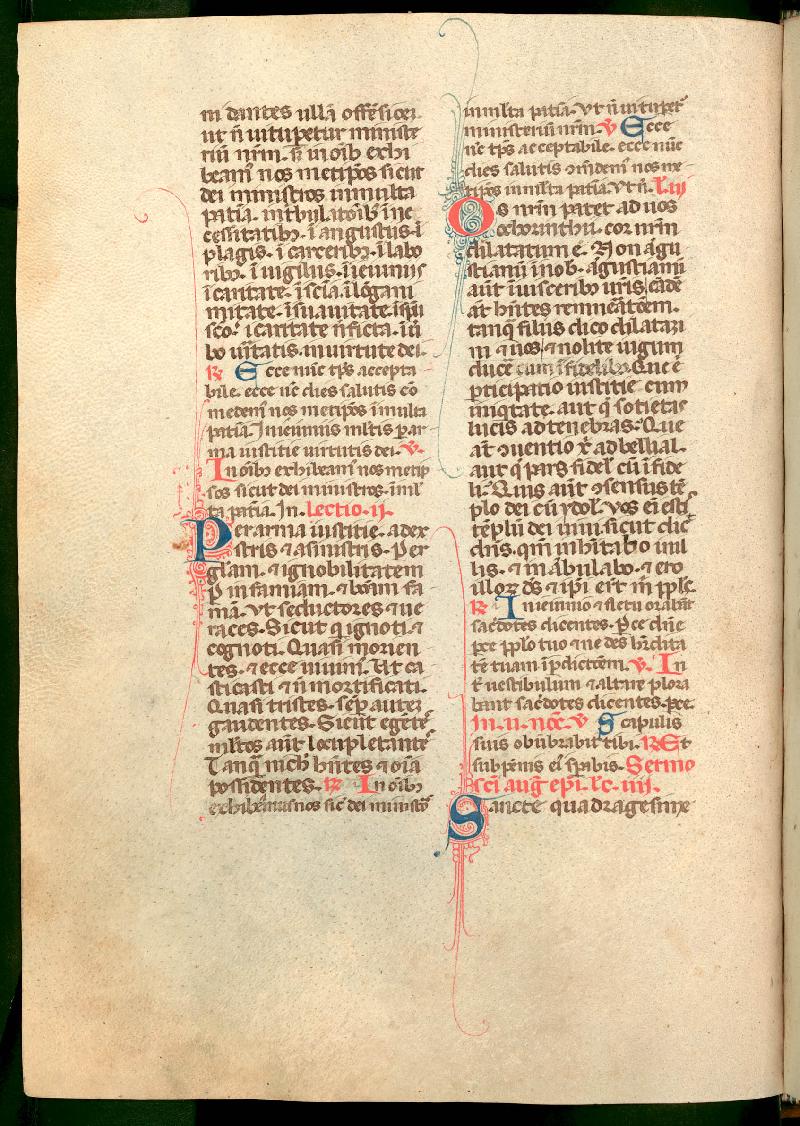 ni dantes ullā offēsiōeꝫ
ut ñ uitupetur ministe
riū nrm̄. s̄ in oīb exhi
beam̄ nos metip̄os sicut
dei ministros in multa
patīa. in tbulatōib ī ne
cessitatibꝫ. ī angustus. ī
plagis. ī carceribꝫ. ī labo
ribꝫ. ī uigilus. ī ieiuniis
ī castitate. ī scīa. ī lōgani
mitate. ī suauitate. ī spū
sco. ī caritate ñ ficta. ī ū
bo ūitatis. in uirtute dei.
℟ Ecce nūc tp̄s accepta
bile. ecce nc̄ dies salutis cō
medem̄ nos metip̄os ī multa
patīa. In ieiuniis mltis p ar
ma iustitie uirtutis dei. ℣
In oībꝫ exhibeam̄ nos metip
sos sicut dei ministros. ī mlͭ
ta patīa. In. Lectio. ii.
Per arma iustitie. a dex
tris ⁊ a sinistris. Per
glām. ⁊ ignobilitatem
p infamiam. ⁊ bonā fa
mā. Vt seductores ⁊ ue
races. Sicut q ignoti. ⁊
cogniti. Quasi morien
tes. ⁊ ecce uiuim̄. Vt ca
sticati ⁊ ñ mortificati.
Quasi tristes. sēp autē
gaudentes. Sicut egētˢ
mltos aūt locupletantˢ
Tanq̄ nich̄ hn̄tes ⁊ oīa
possidentes. ℟ In oībꝫ
exhibeamus nos sic̄ dei ministˢ
in mlta patīa. Vt ñ uitupetˢ
ministeriū nrm̄. ℣ Ecce
nc̄ tp̄s acceptabile. ecce nūc
dies salutis ꝯmdem̄ nos me
tip̄os in mlta patīa. Vt ñ. L. iii
Os nrm̄ patet ad uos
o chorinthii. cor nrm̄
dilatatum ē. Non āgu
stiamī in nob. āgustiamī
aūt ī uisceribꝫ uris. eādē
āt hn̄tes remūeatōem.
tanq̄ filiis dico dilatam̄
ni ⁊ uos ⁊ nolite iugum
ducē cum ī fidelibꝫ. Que ē
pticipatio iustitie cum
iniqtate. aut q̄ sotietas
lucis ad tenebras. Que
āt ꝯuentio x̄ ad bellial.
aut q̄ pars fidel̄ cū ī fide
li. Quis aūt ꝯsensus tē
plo dei cū ydol̄. Vos ēi estis
tēplū dei uiui sicut dic̄
dn̄s. qm̄ inh̄itabo in il
lis. ⁊ in ābulabo. ⁊ ero
illoꝝ ds̄ ⁊ ip̄i ert m̄ pplˢ.
℟ In ieiunio ⁊ fletu orabāt
sac̄dotes dicentes. Pce dn̄e
pce pplo tuo ⁊ ne des h̄edita
tē tuam ī pdictōem. ℣. In
t̄ uestibulum ⁊ altare plora
bant sac̄dotes dicentes. pce.
In. ii. noc̄. ℣ Scapulis
suis obūbrabit tibi. ℟ Et
sub pēnis eī spabis. Sermo
scī auḡ ep̄i. Lc̄. iiii.
Sancte quadragesime